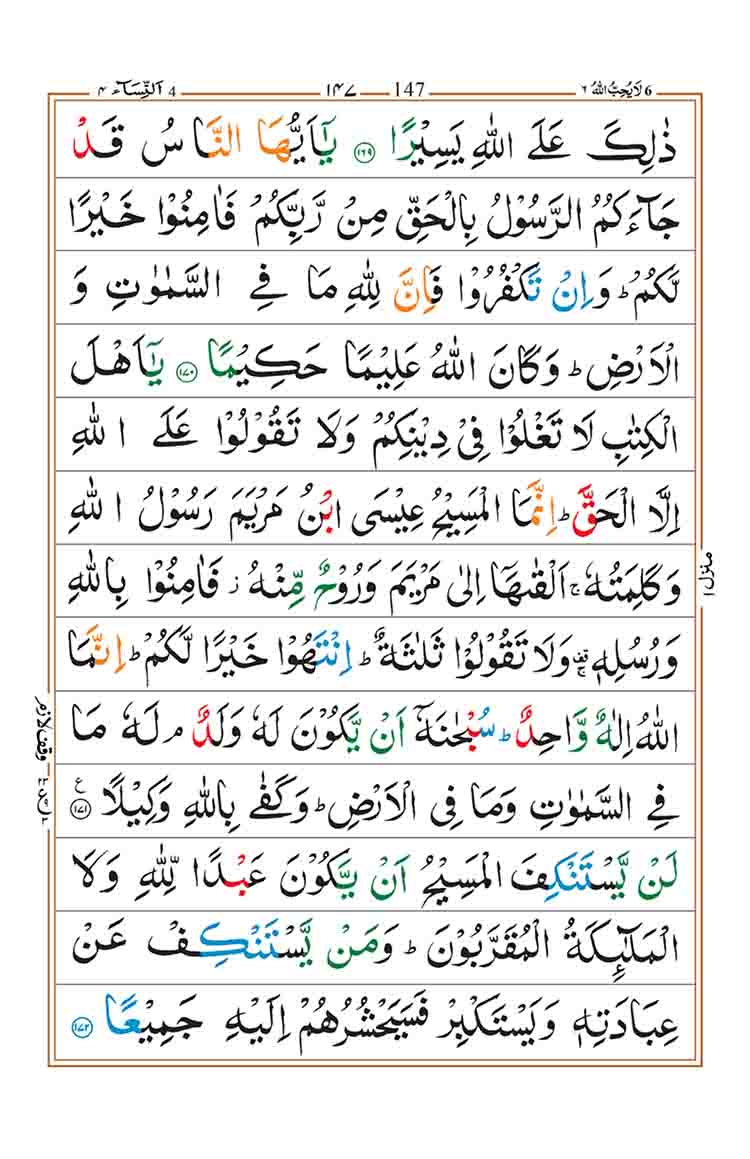 6 لَا يُحِبُّ اللهُ ٦
147 ١٤٧
4 اَلنِّسَآء ٤
ذٰلِكَ عَلَى اللهِ يَسِيْرًا ١٦٩ يٰۤاَيُّهَا النَّاسُ قَدْ
جَآءَكُمُ الرَّسُوْلُ بِالْحَقِّ مِنْ رَّبِّكُمْ فَاٰمِنُوْا خَيْرًا
لَّكُمْ ؕ وَاِنْ تَكْفُرُوْا فَاِنَّ لِلّٰهِ مَا فِي السَّمٰوٰتِ وَ
الْاَرْضِ ؕ وَكَانَ اللهُ عَلِيْمًا حَكِيْمًا ١٧٠ يٰۤاَهْلَ
الْكِتٰبِ لَا تَغْلُوْا فِيْ دِيْنِكُمْ وَلَا تَقُوْلُوْا عَلَى اللهِ
اِلَّا الْحَقَّ ؕ اِنَّمَا الْمَسِيْحُ عِيْسَى ابْنُ مَرْيَمَ رَسُوْلُ اللهِ
وَكَلِمَتُهٗ ۚ اَلْقٰىهَاۤ اِلٰى مَرْيَمَ وَرُوْحٌ مِّنْهُ ز فَاٰمِنُوْا بِاللهِ
وَرُسُلِهٖ ۚ وَلَا تَقُوْلُوْا ثَلٰثَةٌ ؕ اِنْتَهُوْا خَيْرًا لَّكُمْ ؕ اِنَّمَا
اللهُ اِلٰهٌ وَّاحِدٌ ؕ سُبْحٰنَهٗۤ اَنْ يَّكُوْنَ لَهٗ وَلَدٌ ۘ لَهٗ مَا
فِي السَّمٰوٰتِ وَمَا فِي الْاَرْضِ ؕ وَكَفٰى بِاللهِ وَكِيْلًا ع ١٧١
لَنْ يَّسْتَنْكِفَ الْمَسِيْحُ اَنْ يَّكُوْنَ عَبْدًا لِّلّٰهِ وَلَا
الْمَلٰٓئِكَةُ الْمُقَرَّبُوْنَ ؕ وَمَنْ يَّسْتَنْكِفْ عَنْ
عِبَادَتِهٖ وَيَسْتَكْبِرْ فَسَيَحْشُرُهُمْ اِلَيْهِ جَمِيْعًا ١٧٢
منزل ١
وقف لازم